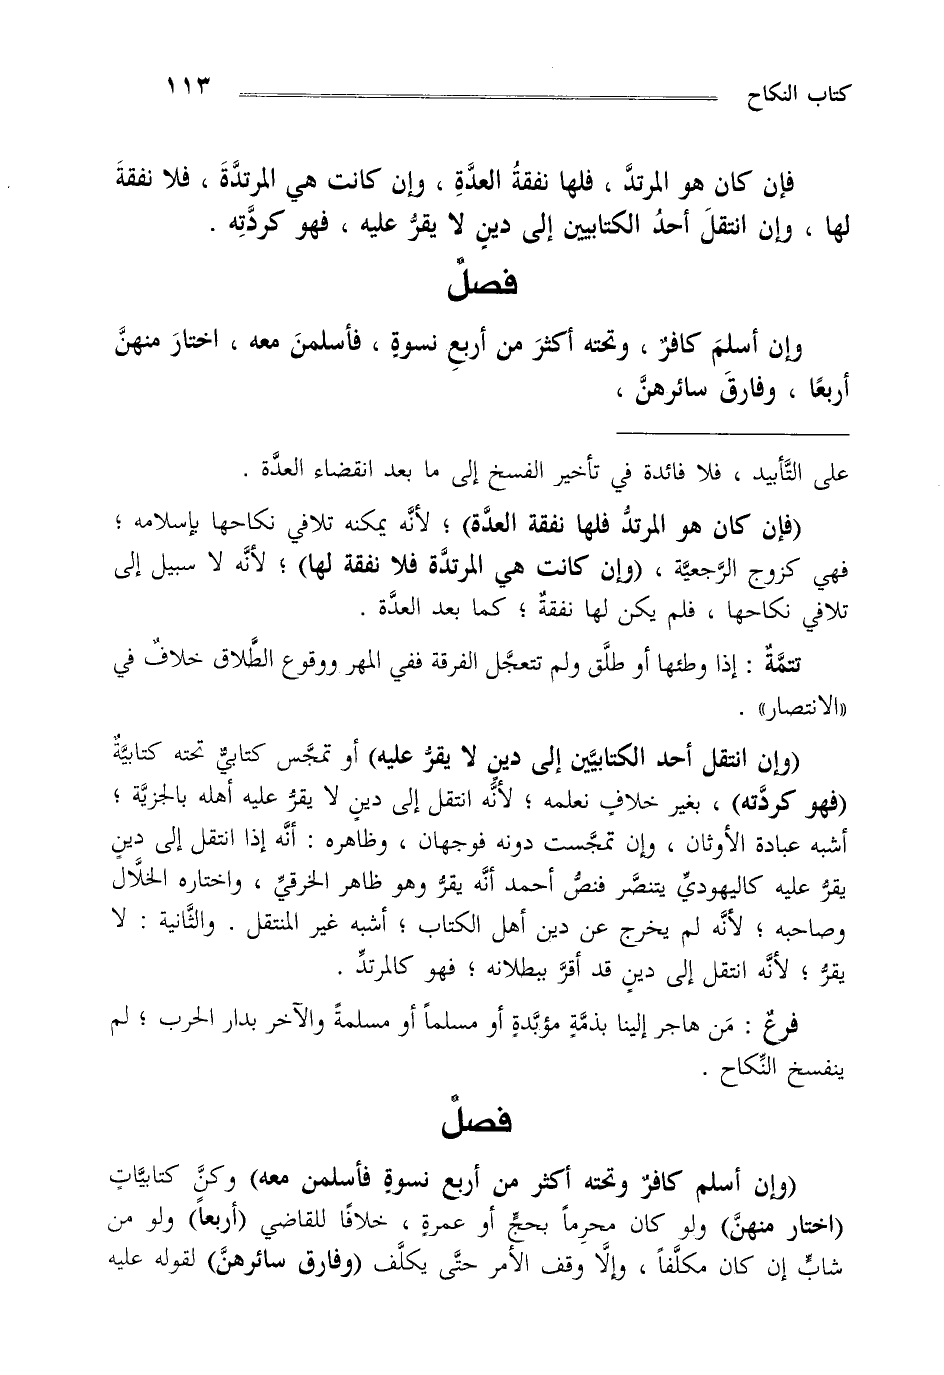 كتاب النكاح ١١٣
فإن كان هو المرتدَّ ، فلها نفقةُ العدَّةِ ، وإن كانت هي المرتدَّةَ ، فلا نفقةَ
لها ، وإن انتقلَ أحدُ الكتابيين إلى دينٍ لا يقرُّ عليه ، فهو كردَّتِه .
فصلٌ
وإن أسلمَ كافرٌ ، وتحته أكثرَ من أربعِ نسوةٍ ، فأسلمنَ معه ، اختارَ منهنَّ
أربعًا ، وفارقَ سائرهنَّ ،
على التَّأبيد ، فلا فائدة في تأخير الفسخ إلى ما بعد انقضاء العدَّة .
(فإن كان هو المرتدُّ فلها نفقة العدَّة) ؛ لأنَّه يمكنه تلافي نكاحها بإسلامه ؛
فهي كزوج الرَّجعيَّة ، (وإن كانت هي المرتدَّة فلا نفقة لها) ؛ لأنَّه لا سبيل إلى
تلافي نكاحها ، فلم يكن لها نفقةٌ ؛ كما بعد العدَّة .
تتمَّةٌ : إذا وطئها أو طلَّق ولم تتعجَّل الفرقة ففي المهر ووقوع الطَّلاق خلافٌ في
«الانتصار» .
(وإن انتقل أحد الكتابيَّين إلى دينٍ لا يقرُّ عليه) أو تمجَّس كتابيٌّ تحته كتابيَّةٌ
(فهو كردَّته) ، بغير خلافٍ نعلمه ؛ لأنَّه انتقل إلى دينٍ لا يقرُّ عليه أهله بالجزيَّة ؛
أشبه عبادة الأوثان ، وإن تمجَّست دونه فوجهان ، وظاهره : أنَّه إذا انتقل إلى دينٍ
يقرُّ عليه كاليهوديِّ يتنصَّر فنصُّ أحمد أنَّه يقرُّ وهو ظاهر الخرقيِّ ، واختاره الخلَّال
وصاحبه ؛ لأنَّه لم يخرج عن دين أهل الكتاب ؛ أشبه غير المنتقل . والثَّانية : لا
يقرُّ ؛ لأنَّه انتقل إلى دينٍ قد أقرَّ ببطلانه ؛ فهو كالمرتدِّ .
فرعٌ : مَن هاجر إلينا بذمَّةٍ مؤبَّدةٍ أو مسلماً أو مسلمةً والآخر بدار الحرب ؛ لم
ينفسخ النِّكاح .
فصلٌ
(وإن أسلم كافرٌ وتحته أكثر من أربع نسوةٍ فأسلمن معه) وكنَّ كتابيَّاتٍ
(اختار منهنَّ) ولو كان محرِماً بحجٍّ أو عمرةٍ ، خلافًا للقاضي (أربعاً) ولو من
شابٍّ إن كان مكلَّفاً ، وإلَّا وقف الأمر حتَّى يكلَّف (وفارق سائرهنَّ) لقوله عليه